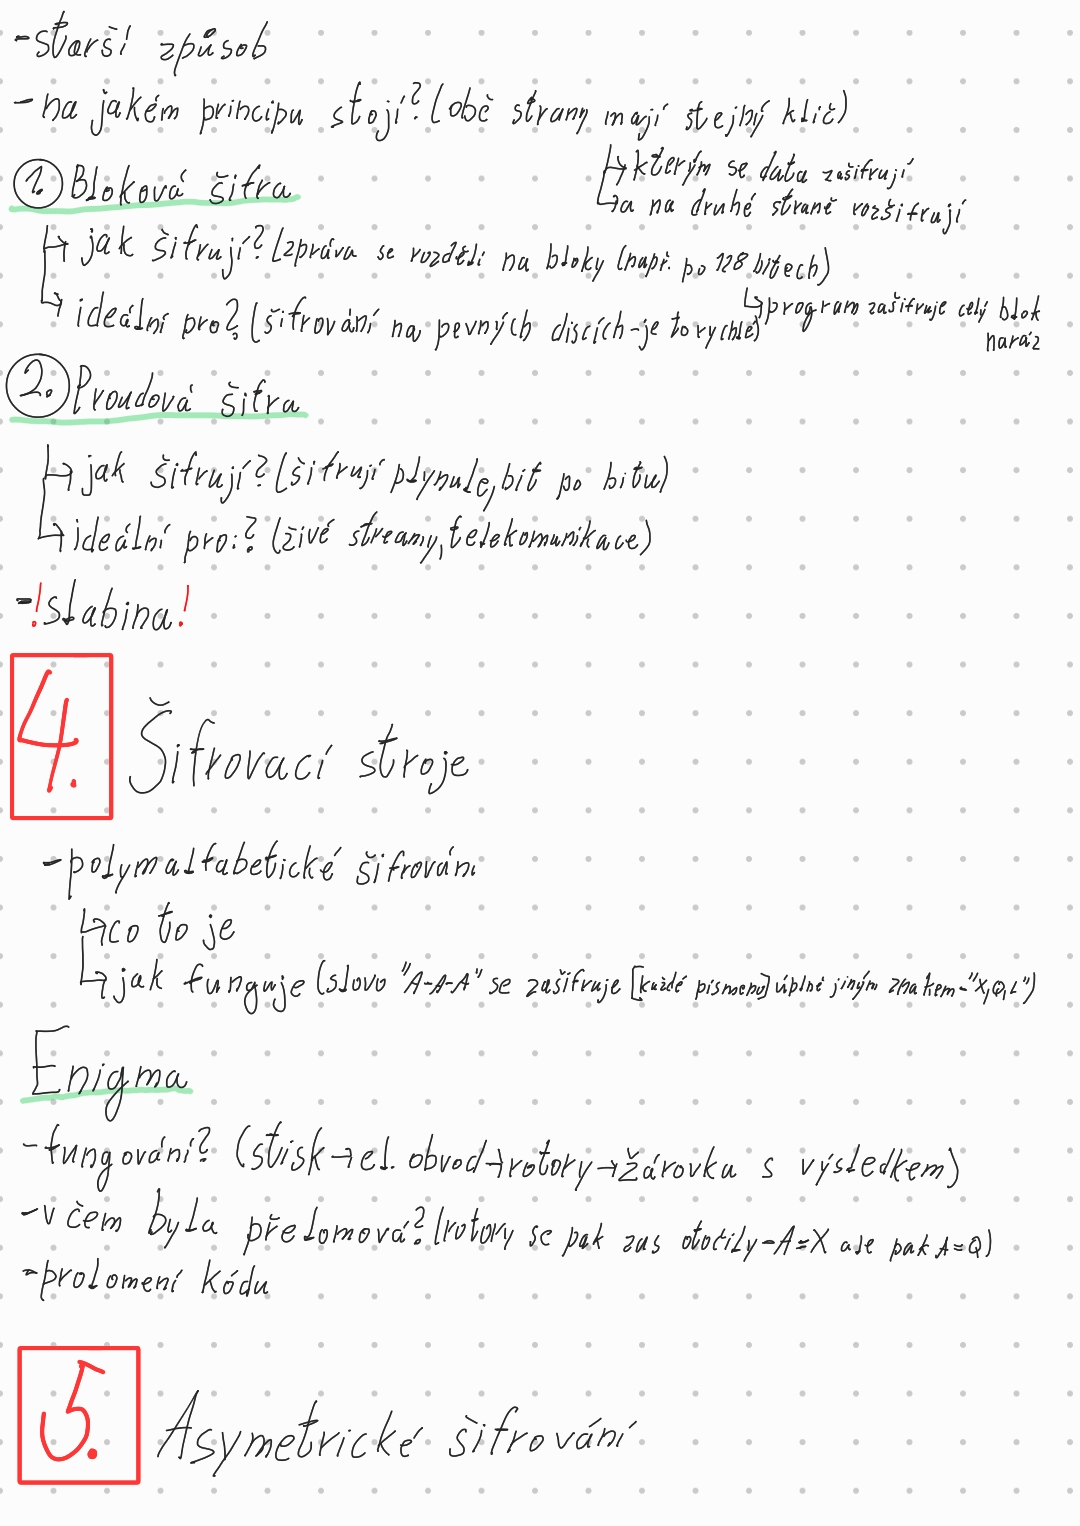 -starší způsob
-na jakém principu stojí? (obě strany mají stejný klíč)
↳kterým se data zašifrují
↳a na druhé straně rozšifrují
1. Bloková šifra
↳jak šifrují? (zpráva se rozdělí na bloky (např. po 128 bitech)
↳program zašifruje celý blok
naráz
↳ideální pro? (šifrování na pevných discích-je to rychlé)
2. Proudová šifra
↳jak šifrují? (šifrují plynule, bit po bitu)
↳ideální pro:? (živé streamy, telekomunikace)
-!slabina!
4. Šifrovací stroje
-polymalfabetické šifrování
↳co to je
↳jak funguje (slovo "A-A-A" se zašifruje [každé písmeno] úplně jiným znakem-"X,Q,L")
Enigma
-fungování? (stisk→el. obvod→rotory→žárovka s výsledkem)
-v čem byla přelomová? (rotory se pak zas otočily-A=X ale pak A=Q)
-prolomení kódu
5. Asymetrické šifrování